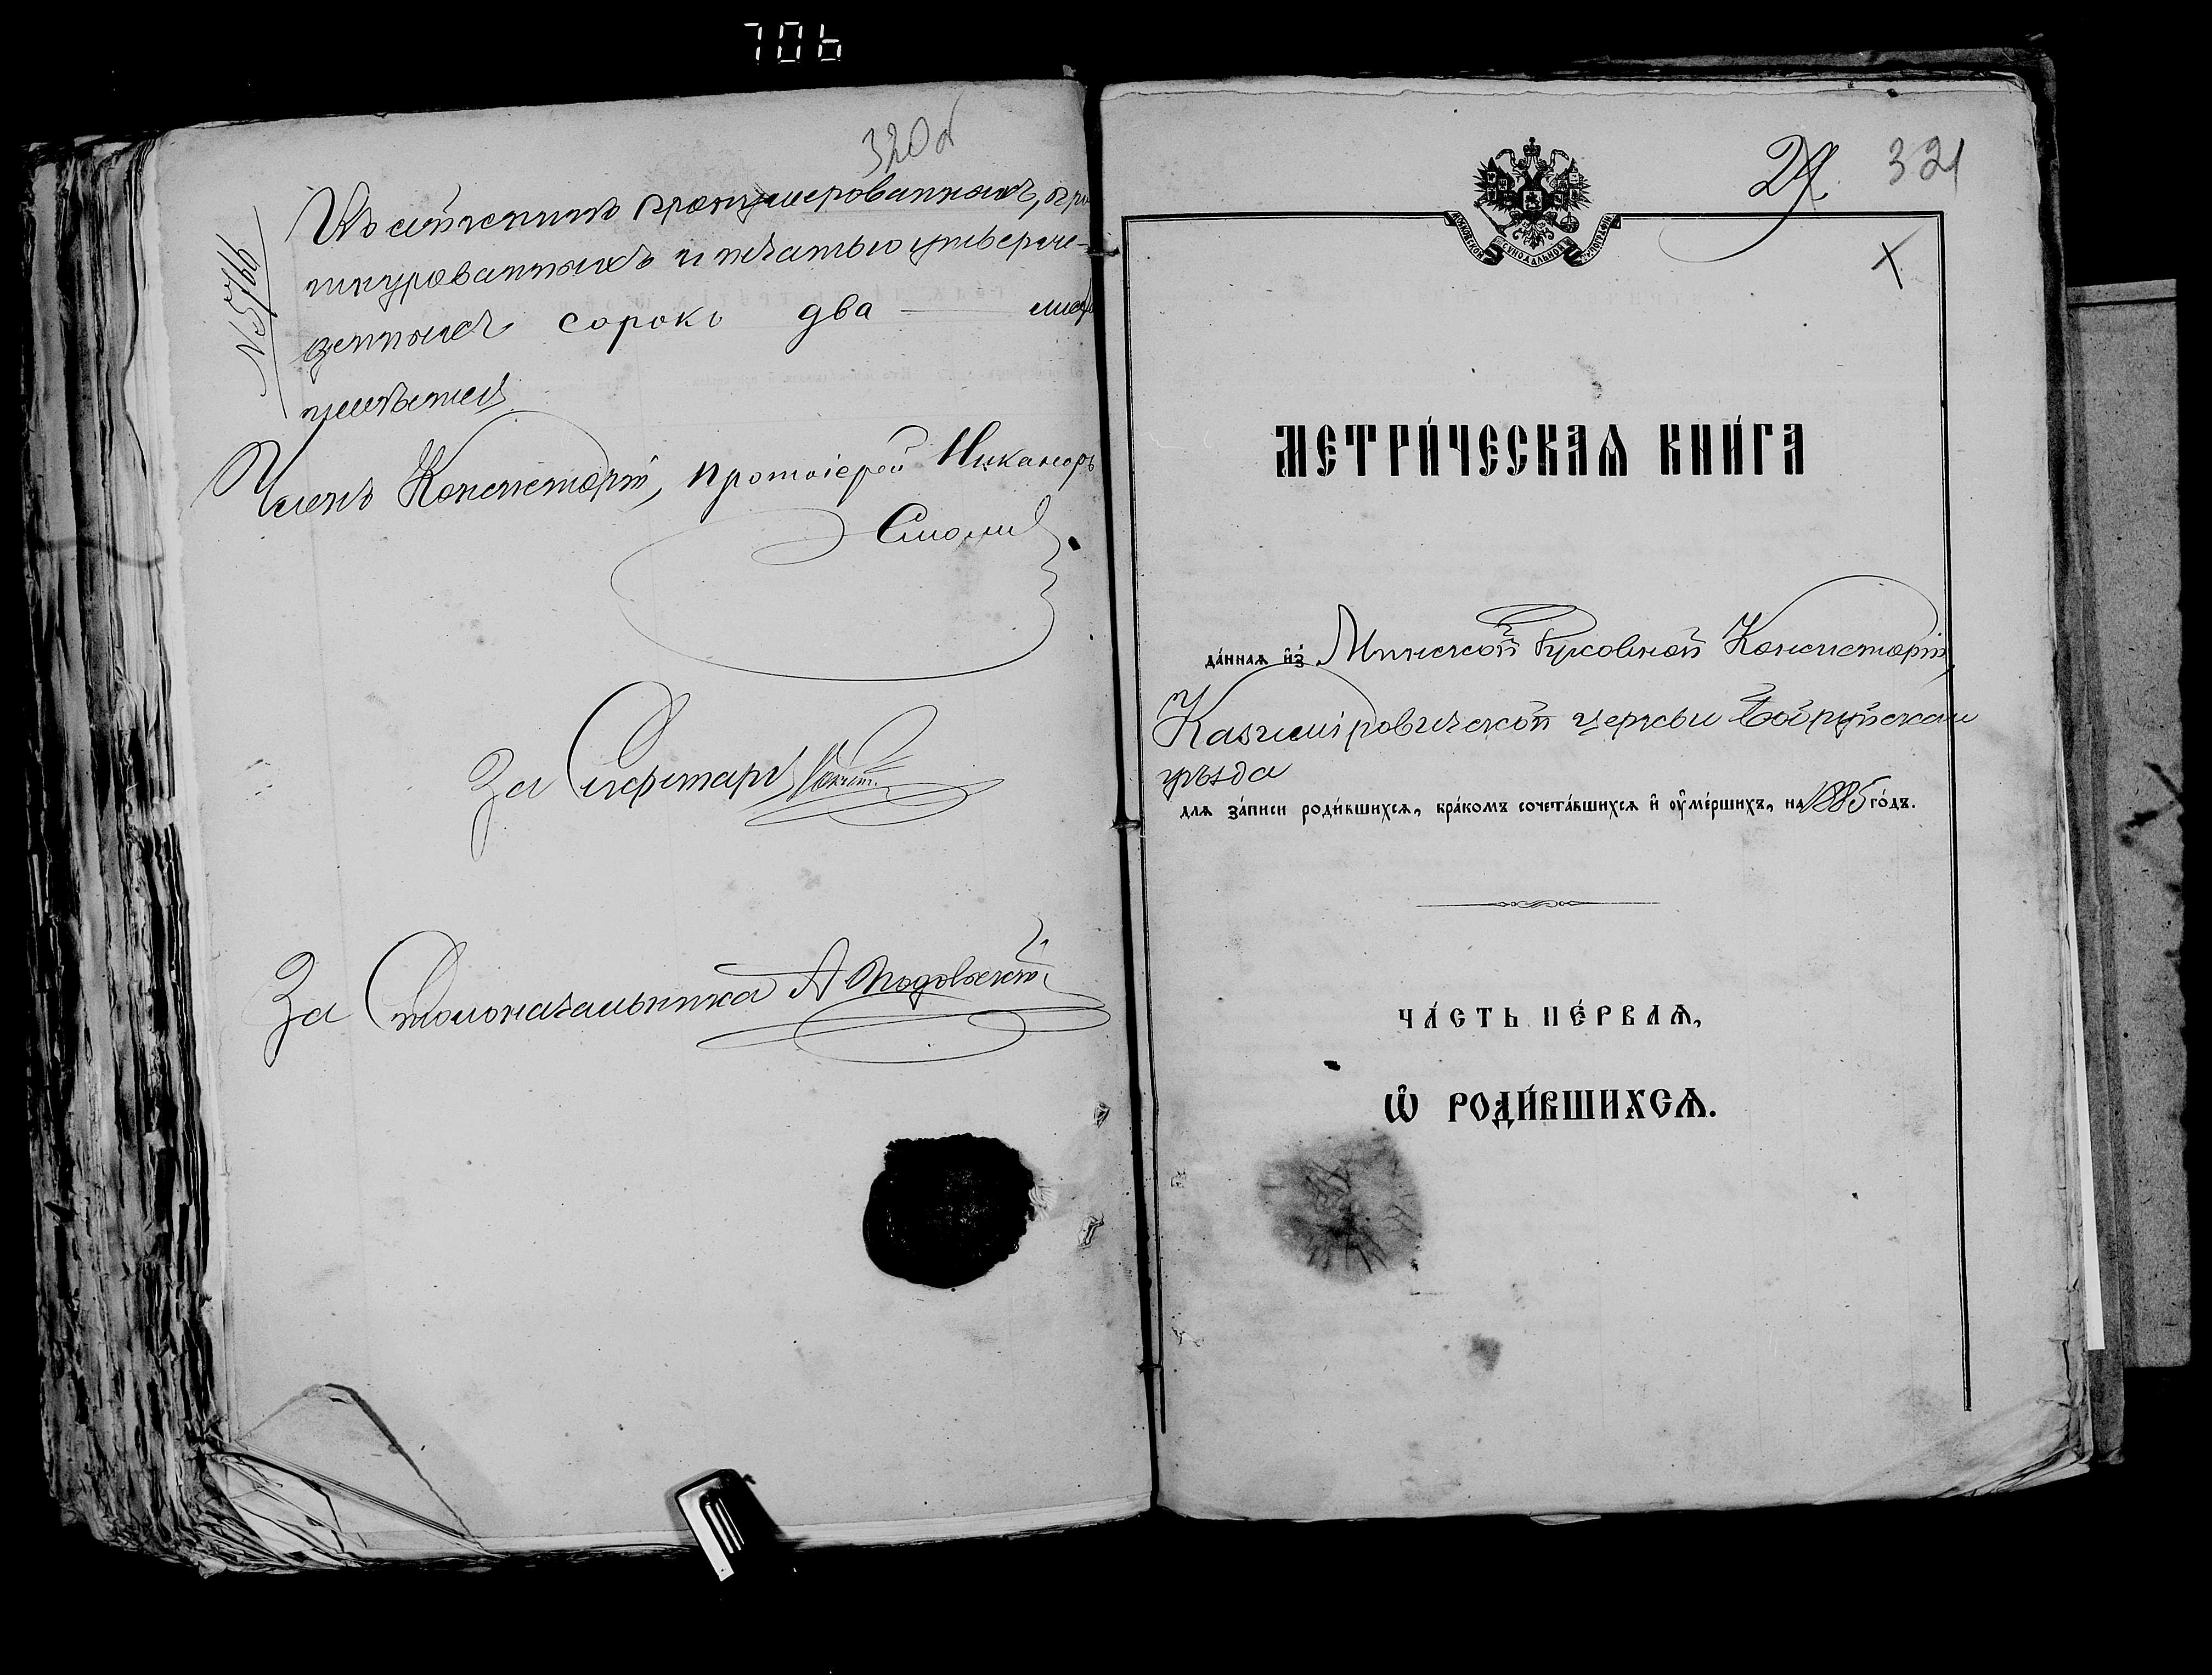 706
320б
№ 5746
Въ сей книгѣ пронумерованныхъ, про
шнурованныхъ и печатью утверж-
денныхъ сорокъ два — листа
имѣется
Членъ Консисторіи, Протоіерей Никаноръ
Смолич
За Секретаря
За Столоначальника А
29. 321
МОСКОВСКОЙ СѴНОДАЛЬНОЙ ТИПОГРАФІИ
х
МЕТРИ́ЧЕСКАѦ КНИ́ГА
да́ннаѧ и҆з̾ Минской Духовной Консисторіи,
Казиміровической церкви Бобруйскаго
уѣзда
длѧ за́писи роди́вшихсѧ, бра́комъ сочета́вшихсѧ и҆ ᲂу҆ме́ршихъ, на 1885 го́дъ.
ЧА́СТЬ ПЕ́РВАѦ,
Ѡ҆ РОДИ́ВШИХСѦ.